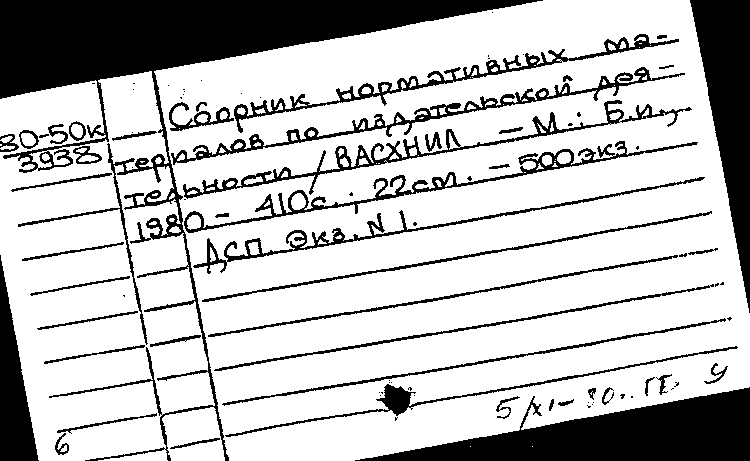 80-50к
3938
Сборник нормативных ма-
териалов по издательской дея-
тельности / ВАСХНИЛ. - М.: Б.и.,
1980 - 410с.; 22см. - 500экз.
ДСП. Экз. N 1.
5/XI-80.
6